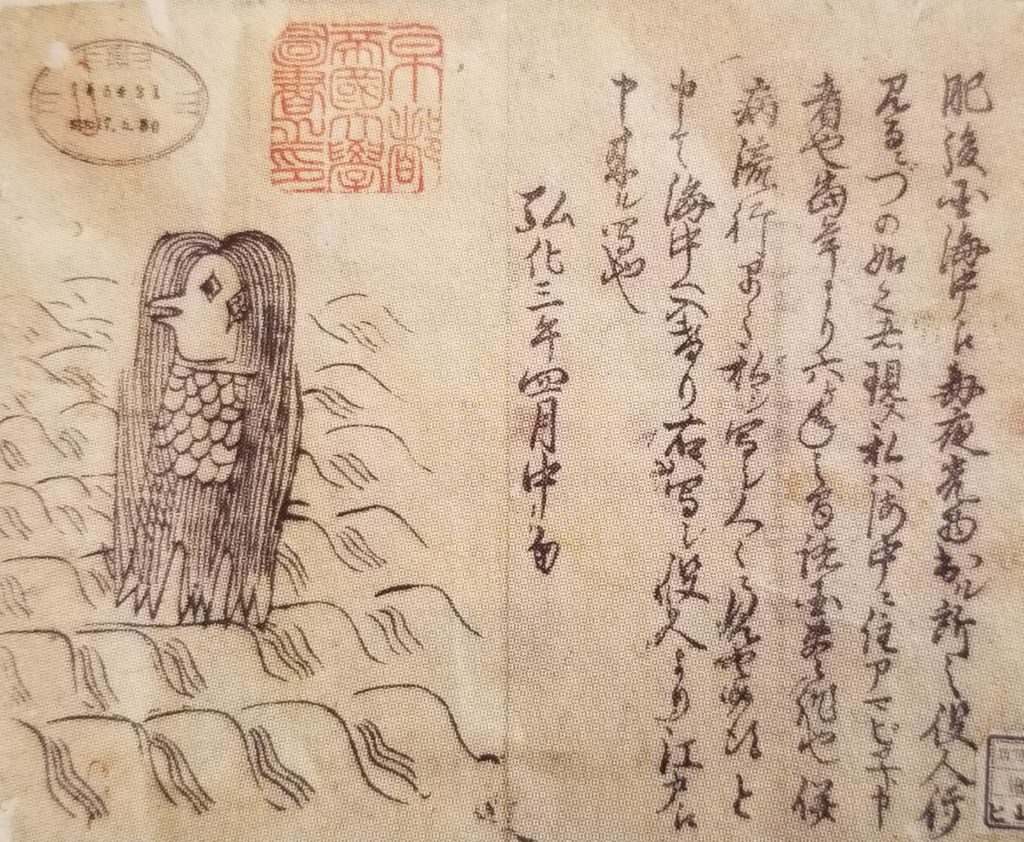 肥後国海中え毎夜光物出ル所之役人行
見るニづの如く者現ス私ハ海中ニ住アマビヱト申
者也当年より六ケ年之間諸国豊作也併
病流行早々私ヲ写シ人々ニ見せ候得と
申て海中へ入けり右写シ役人より江戸え
申来ル写也
弘化三年四月中旬
京都
帝國大學
圖書之印